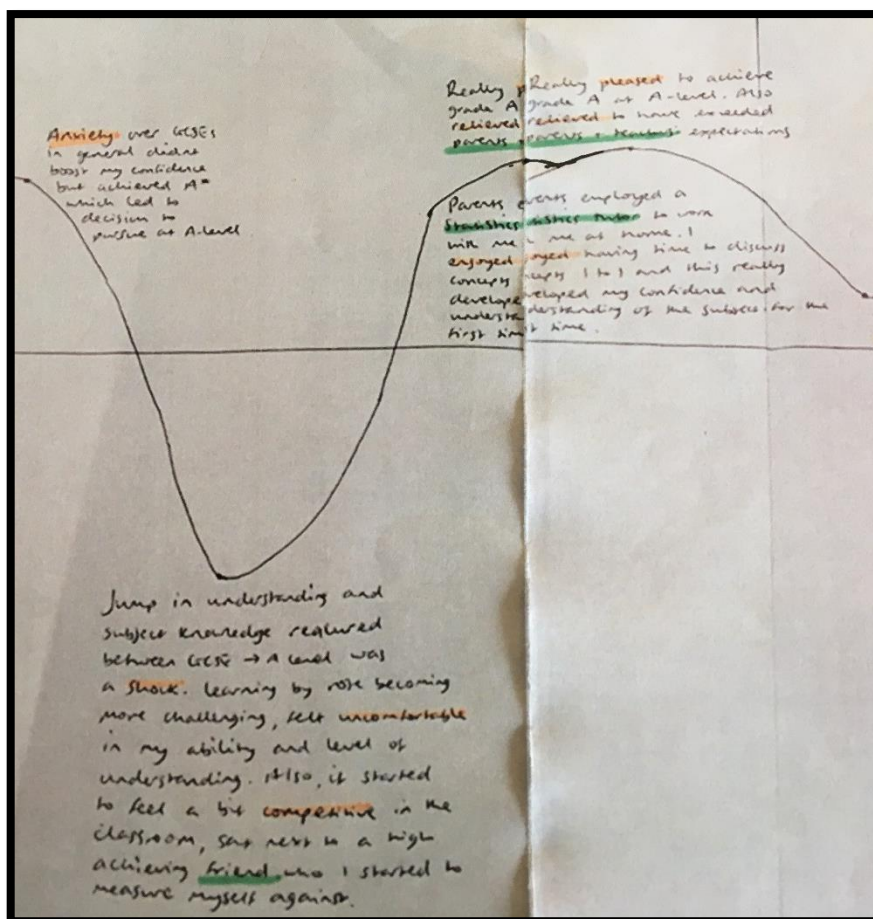 Anxiety over GCSEs
in general didnt
boost my confidence
but achieved A*
which led to
decision to
pursue at A-level
Really p Really pleased to achieve
grade A grade A at A-level. Also
relieved relieved to have exceeded
parents + parents + teachers expectations
Parents e rents employed a
statistics tistics tutor to work
with me h me at home. I
enjoyed joyed having time to discuss
concepts cepts 1 to 1 and this really
developed veloped my confidence and
understa derstanding of the subject for the
first time t time.
Jump in understanding and
subject knowledge required
between GCSE → A level was
a shock. Learning by rote becoming
more challenging, felt uncomfortable
in my ability and level of
understanding. Also, it started
to feel a bit competitive in the
classroom, sat next to a high
achieving friend who I started to
measure myself against.